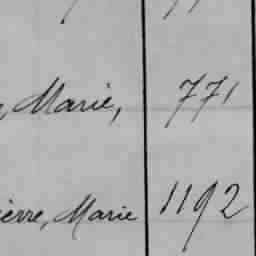 , Marie, 771
ierre, Marie 1192